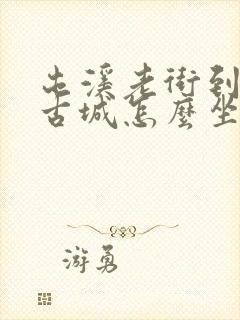 屯溪老街到
古城怎麼坐
游勇